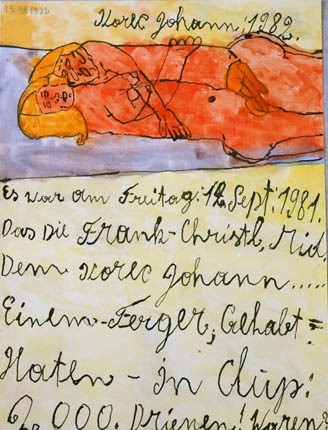 Korec Johann. 1982.
Es war am Freitag. 12 Sept. 1981.
Das Die Frank-Christl, Mid.
Dem Korec Johann.....
Einem-Ferger, Gehabt =
Haten - in Clup:
2.000. Drienen! Waren